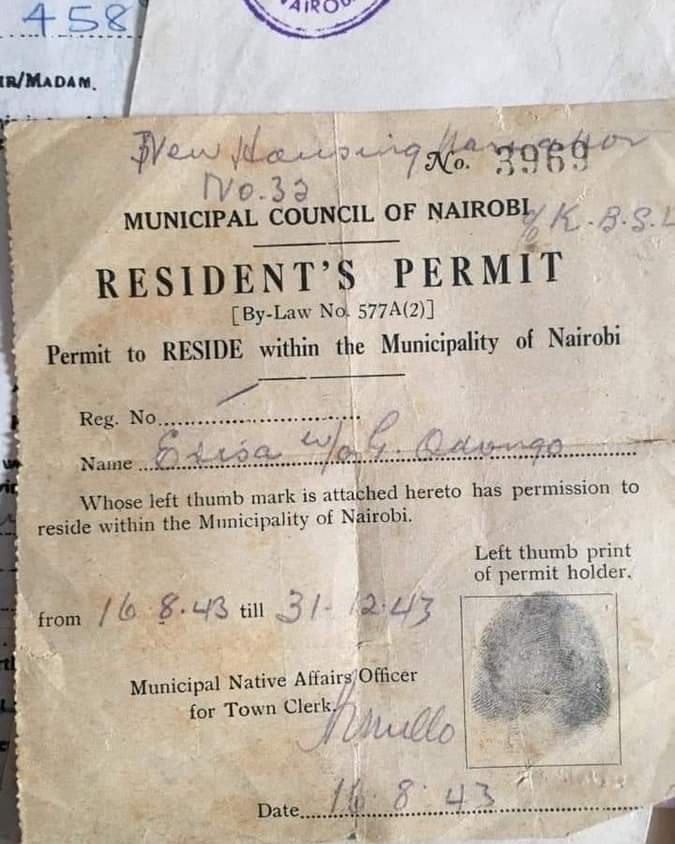 458
IR/MADAM.
NAIROB
New Housing
No. 3969
No. 32
MUNICIPAL COUNCIL OF NAIROBI
c/o K.B.S.L
RESIDENT'S PERMIT
[By-Law No. 577A(2)]
Permit to RESIDE within the Municipality of Nairobi
Reg. No.
Name Erisa w/o G. Odongo
Whose left thumb mark is attached hereto has permission to
reside within the Municipality of Nairobi.
Left thumb print
of permit holder.
from 16 8.43 till 31-12.43
Municipal Native Affairs Officer
for Town Clerk.
Date 16. 8. 43